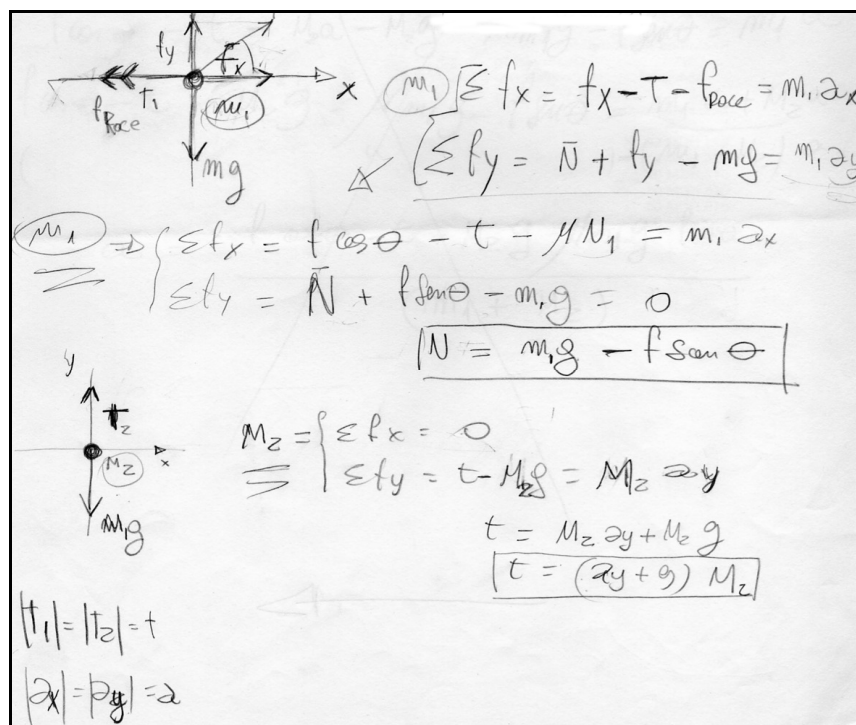 fy
fx
x
T₁
fRoce
m₁
mg
m₁ { Σfx = fx - T - fRoce = m₁ax
Σfy = N̄ + fy - mg = m₁ay
m₁ ⇒ { Σfx = f cosθ - t - μN₁ = m₁ax
Σfy = N̄ + f senθ - m₁g = 0
N = m₁g - f senθ
y
T₂
x
M₂
m₁g
M₂ = { Σfx = 0
Σfy = t - M₂g = M₂ ay
t = M₂ ay + M₂ g
t = (ay + g) M₂
|t₁| = |t₂| = t
|ax| = |ay| = a